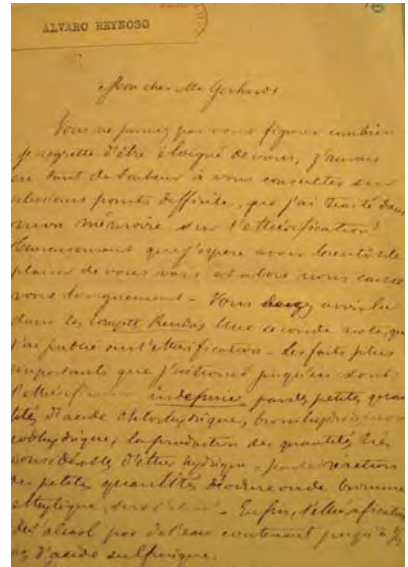 ALVARO REYNOSO
Mon cher Mr Gerhardt
Vous ne pouvez pas vous figurer combien
je regrette d'être éloigné de vous, j'aurais
eu tant de bonheur à vous consulter sur
plusieurs points difficiles, que j'ai traité dans
mon mémoire sur l'éthérification!
Heureusement que j'espere avoir bientôt le
plaisir de vous voir et alors nous cause
rons longuement - Vous avez
dans les Comptes Rendus une seconde note que
j'ai publié sur l'éthérification - Les faits plus
importants que j'ai jusqu'ici sont
l'éthérification indefinie par des petites quan
tités d'acide chlorhydrique, bromhydrique
iodhydrique, la production des quantités très
considérable d'éther hydrique, par la réaction
des petites quantités d'iodure ou de bromure
éthylique, sur l'alcool - Enfin, l'éthérification
de l'alcool par de l'eau contenant jusqu'à
d'acide sulfurique.